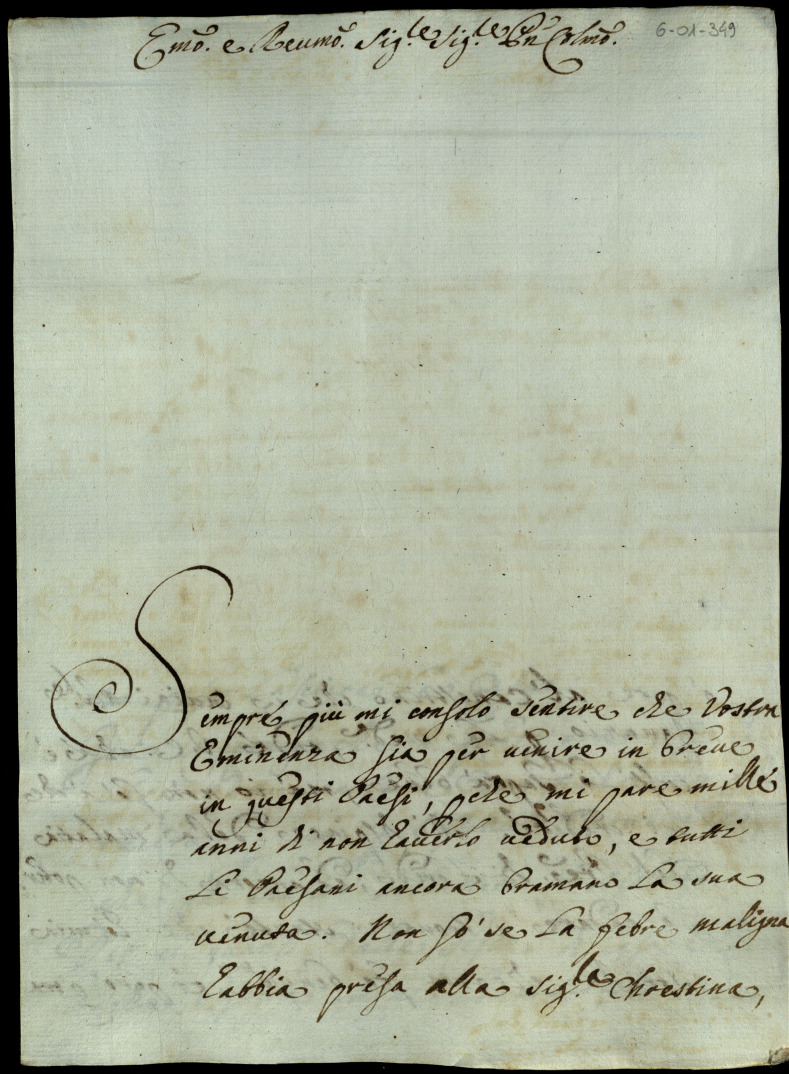 Emo. e Reumo. Sig.re Sig.re Pn Colmo.
6-01-349
Sempre più mi consolo sentire che Vostra
Eminenza sia per uenire in breue
in questi Paesi, pche mi pare mille
anni di non hauerlo ueduto, e tutti
li Paesani ancora bramano la sua
uenuta. Non sò se la febre maligna
habbia presa alla Sig.re Chrestina,